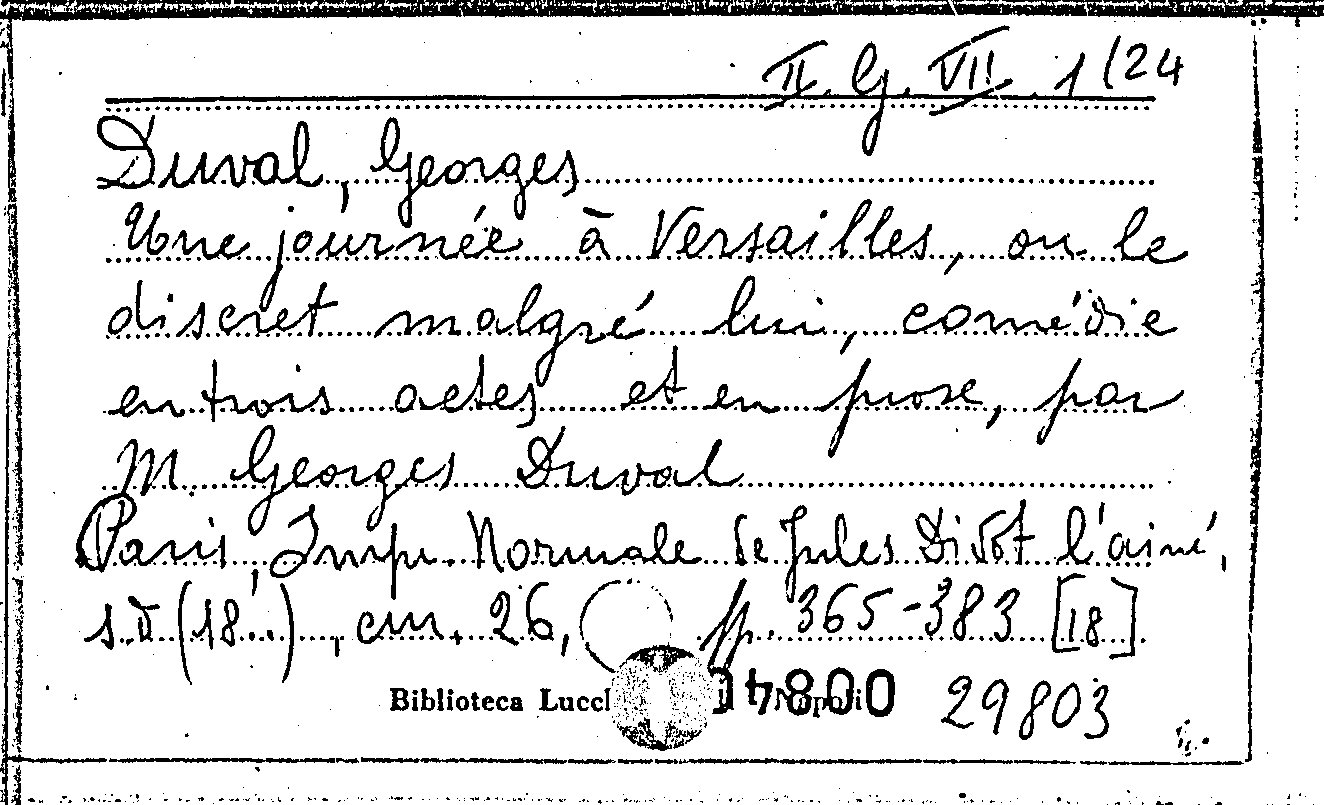 II. G. VII. 1/24
Duval, Georges
Une journée à Versailles, ou le
discret malgré lui, comédie
en trois actes et en prose, par
M. Georges Duval
Paris, Imp. Normale de Jules Didot l'ainé,
s.d (18..), cm. 26, pp. 365-383 [18]
Biblioteca 29803